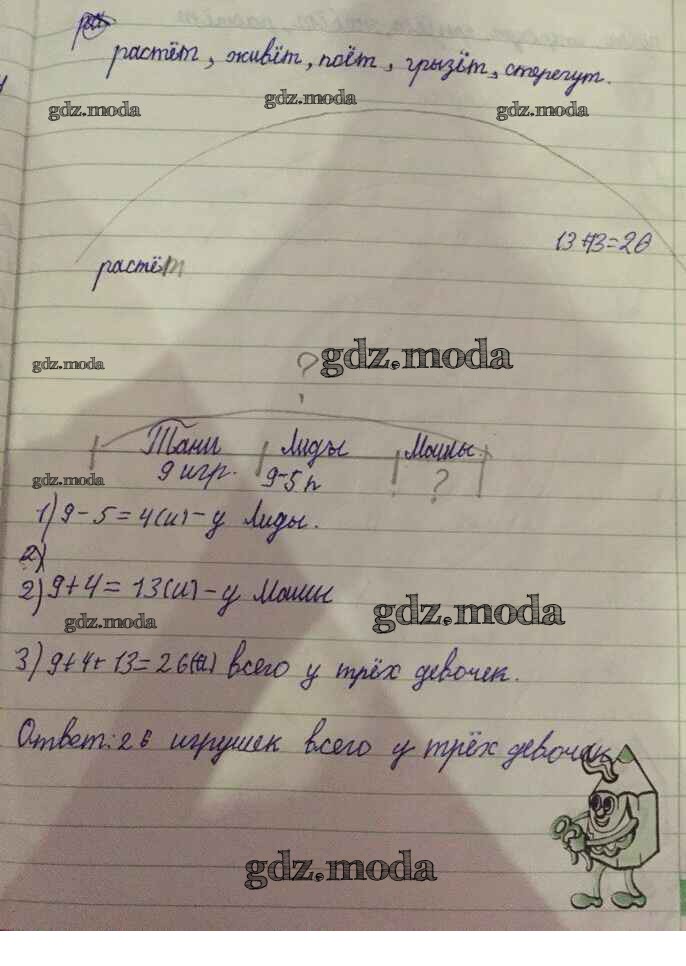 растёт, живёт, поёт, грызёт, стерегут.
gdz.moda gdz.moda gdz.moda
13+13=26
растёт
?
gdz.moda
gdz.moda
Тани Лиды Маши
9 игр. 9-5 ?
gdz.moda
1) 9-5=4(и)-у Лиды.
2)
2) 9+4=13(и)-у Маши
gdz.moda
gdz.moda
3) 9+4+13=26(и) всего у трёх девочек.
Ответ: 26 игрушек всего у трёх девочек
gdz.moda